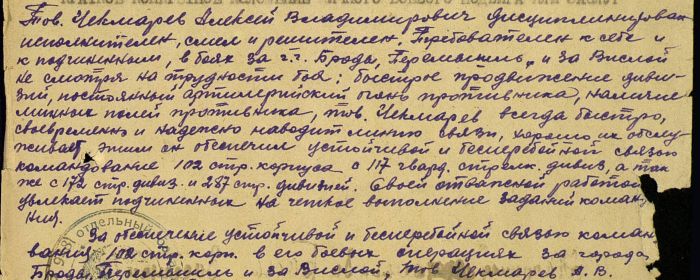 КРАТКОЕ КОНКРЕТНОЕ ИЗЛОЖЕНИЕ ЛИЧНОГО БОЕВОГО ПОДВИГА ИЛИ ЗАСЛУГ
Тов. Чекмарев Алексей Владимирович дисциплинирован
исполнителен, смел и решителен. Требователен к себе и
к подчиненным, в боях за г.г. Броды, Перемышль, и за Вислой
не смотря на трудности боя; быстрое продвижение диви-
зий, постоянный артиллерийский огонь противника, наличие
минных полей противника, тов. Чекмарев всегда быстро,
своевременно и надежно наводит линию связи, хорошо их обслу-
живает, этим он обеспечил устойчивой и бесперебойной связью
командование 102 стр. корпуса с 117 гвард. стрелк. дивиз. а так
же с 172 стр. дивиз. и 287 стр. дивизией. Своей отважной работой
увлекает подчиненных на четкое выполнение заданий коман.
За обеспечение устойчивой и бесперебойной связью коман
102 стр. корп. в его боевых операциях за города
Броды, Перемышль и за Вислой, Тов Чекмарев А. В.
отдельный